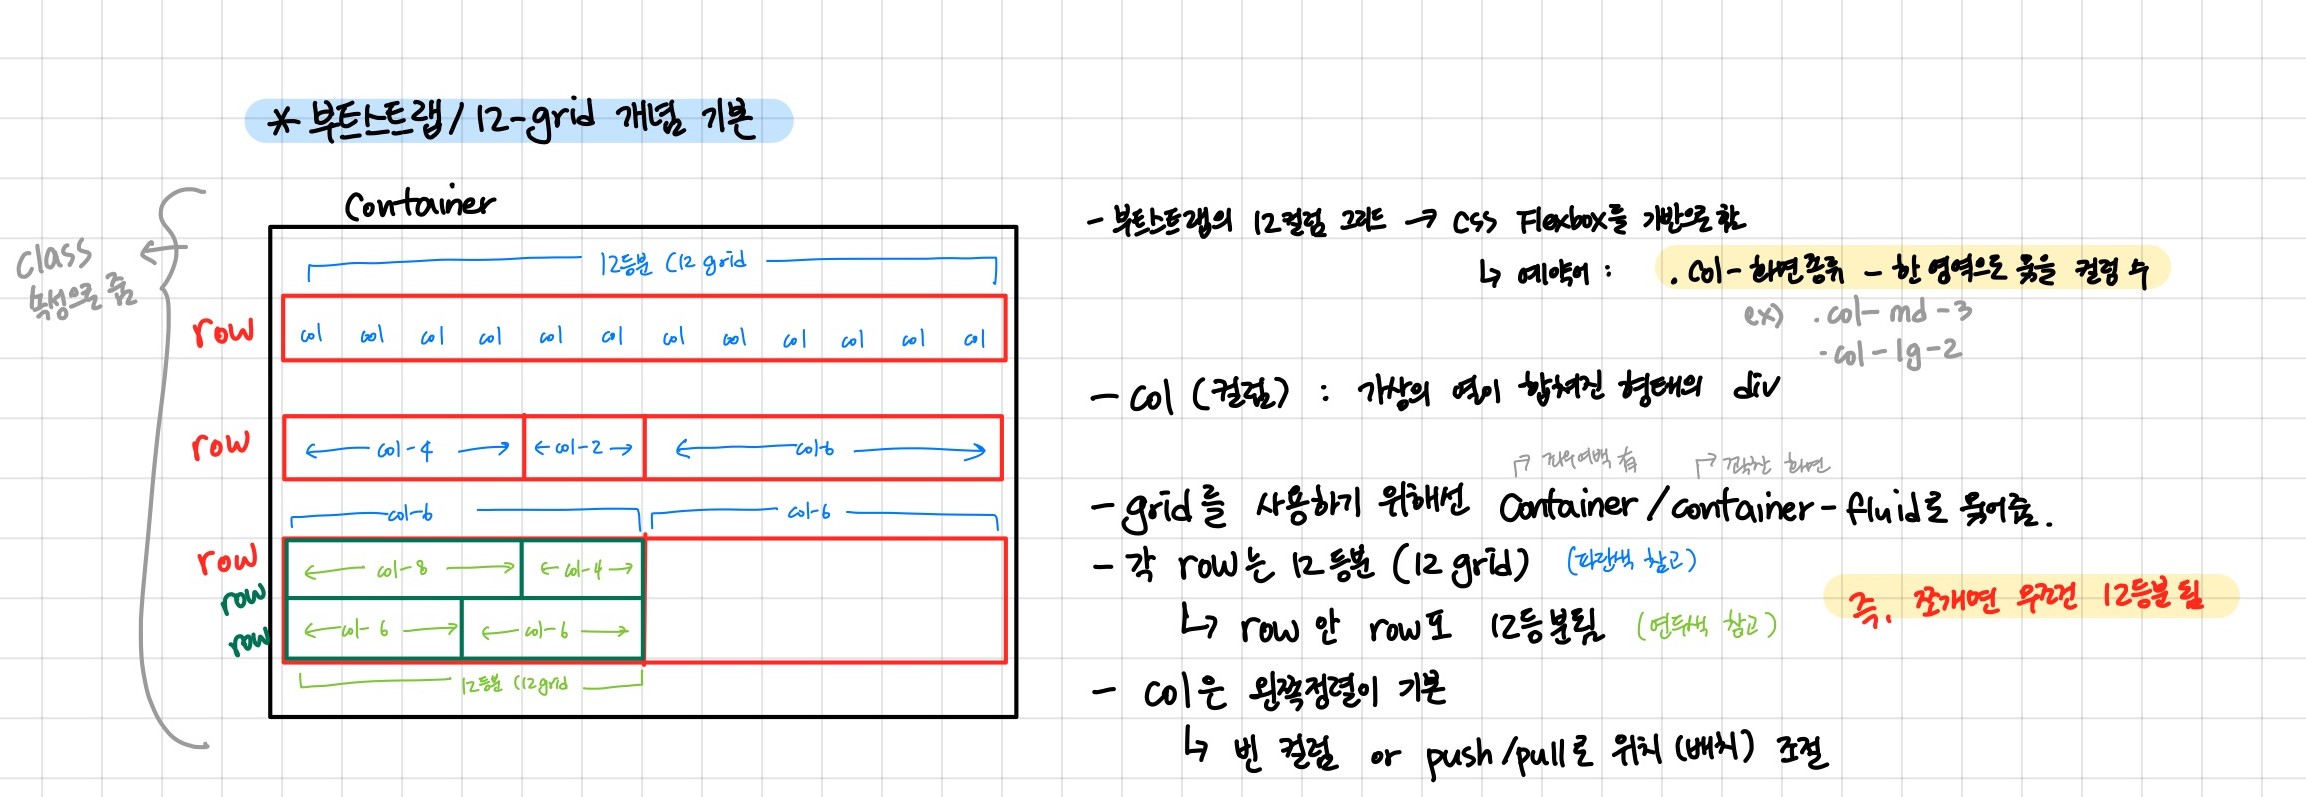 * 부트스트랩 / 12-grid 개념 기본
Container
class
속성으로 줌
12등분 (12 grid
row
col col col col col col col col col col col col
row
col-4 col-2 col-6
col-6 col-6
row
row
col-8 col-4
row
col-6 col-6
12등분 (12grid
- 부트스트랩의 12컬럼 그리드 → CSS Flexbox를 기반으로 함
↳ 예약어 : .col-화면종류 - 한 영역으로 묶을 컬럼 수
ex) .col-md-3
.col-lg-2
- col (컬럼) : 가상의 열이 합쳐진 형태의 div
좌우여백 有 꽉찬 화면
- grid를 사용하기 위해선 Container / container-fluid로 묶어줌.
- 각 row는 12등분 (12 grid) (파란색 참고)
↳ row 안 row도 12등분됨 (연두색 참고)
즉, 쪼개면 무조건 12등분 됨
- col은 왼쪽정렬이 기본
↳ 빈 컬럼 or push/pull로 위치(배치) 조절